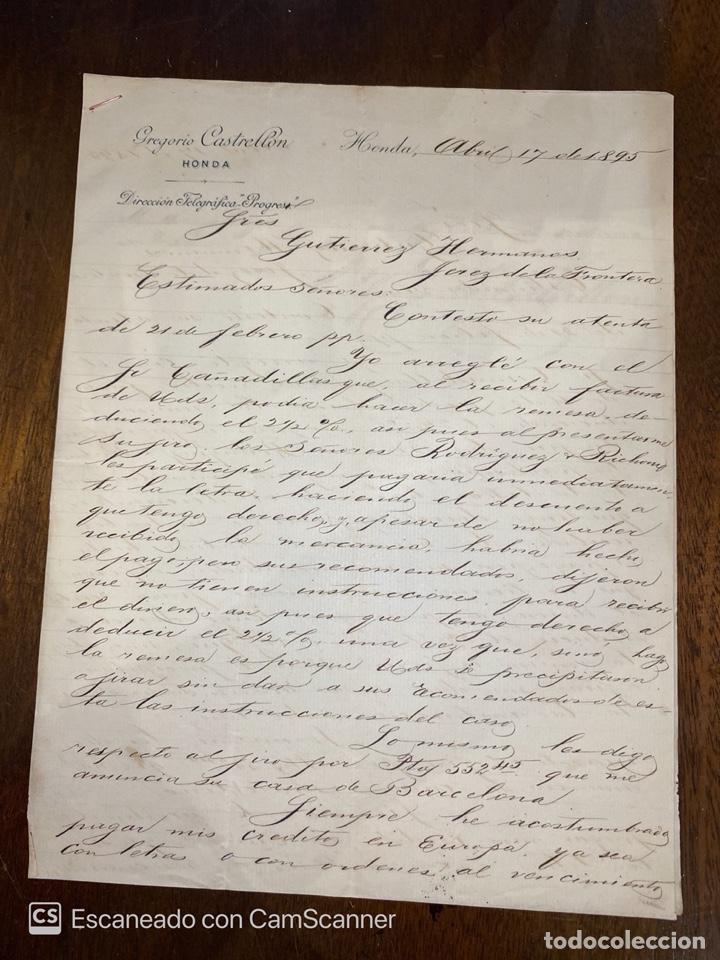 Gregorio Castrellón
HONDA
Dirección Telegráfica "Progreso"
Honda, Abril 17 de 1895
Sres
Gutierrez Hermanos.
Jerez de la Frontera.
Estimados Señores:
Contesto su atenta
de 21 de febrero pp.
Yo arreglé con el
Sr Cañadillas que, al recibir factura
de Uds, podia hacer la remesa, de-
duciendo el 2 1/2 %, asi pues al presentarme
su jiro, los Señores Rodríguez &
les participé que pagaria inmediatamen-
te la letra, haciendo el descuento a
que tengo derecho, y, apesar de no haber
recibido la mercancia, habria hecho
el pago, pero sus recomendados, dijeron
que no tienen instrucciones para recibir
el dinero, asi pues que tengo derecho a
deducir el 2 1/2 %, una vez que, sinó hago
la remesa es porque Uds se precipitaron
a jirar sin dar a sus recomendados de es-
ta las instrucciones del caso.
Lo mismo les digo
respecto al jiro por Ptas 552 45 que me
anuncia su casa de Barcelona
Siempre he acostumbrado
pagar mis credito en Europa ya sea
con letras o con ordenes, al vencimiento
CS Escaneado con CamScanner
todocoleccion